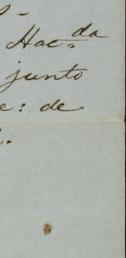 Hac.da
junto
e: de